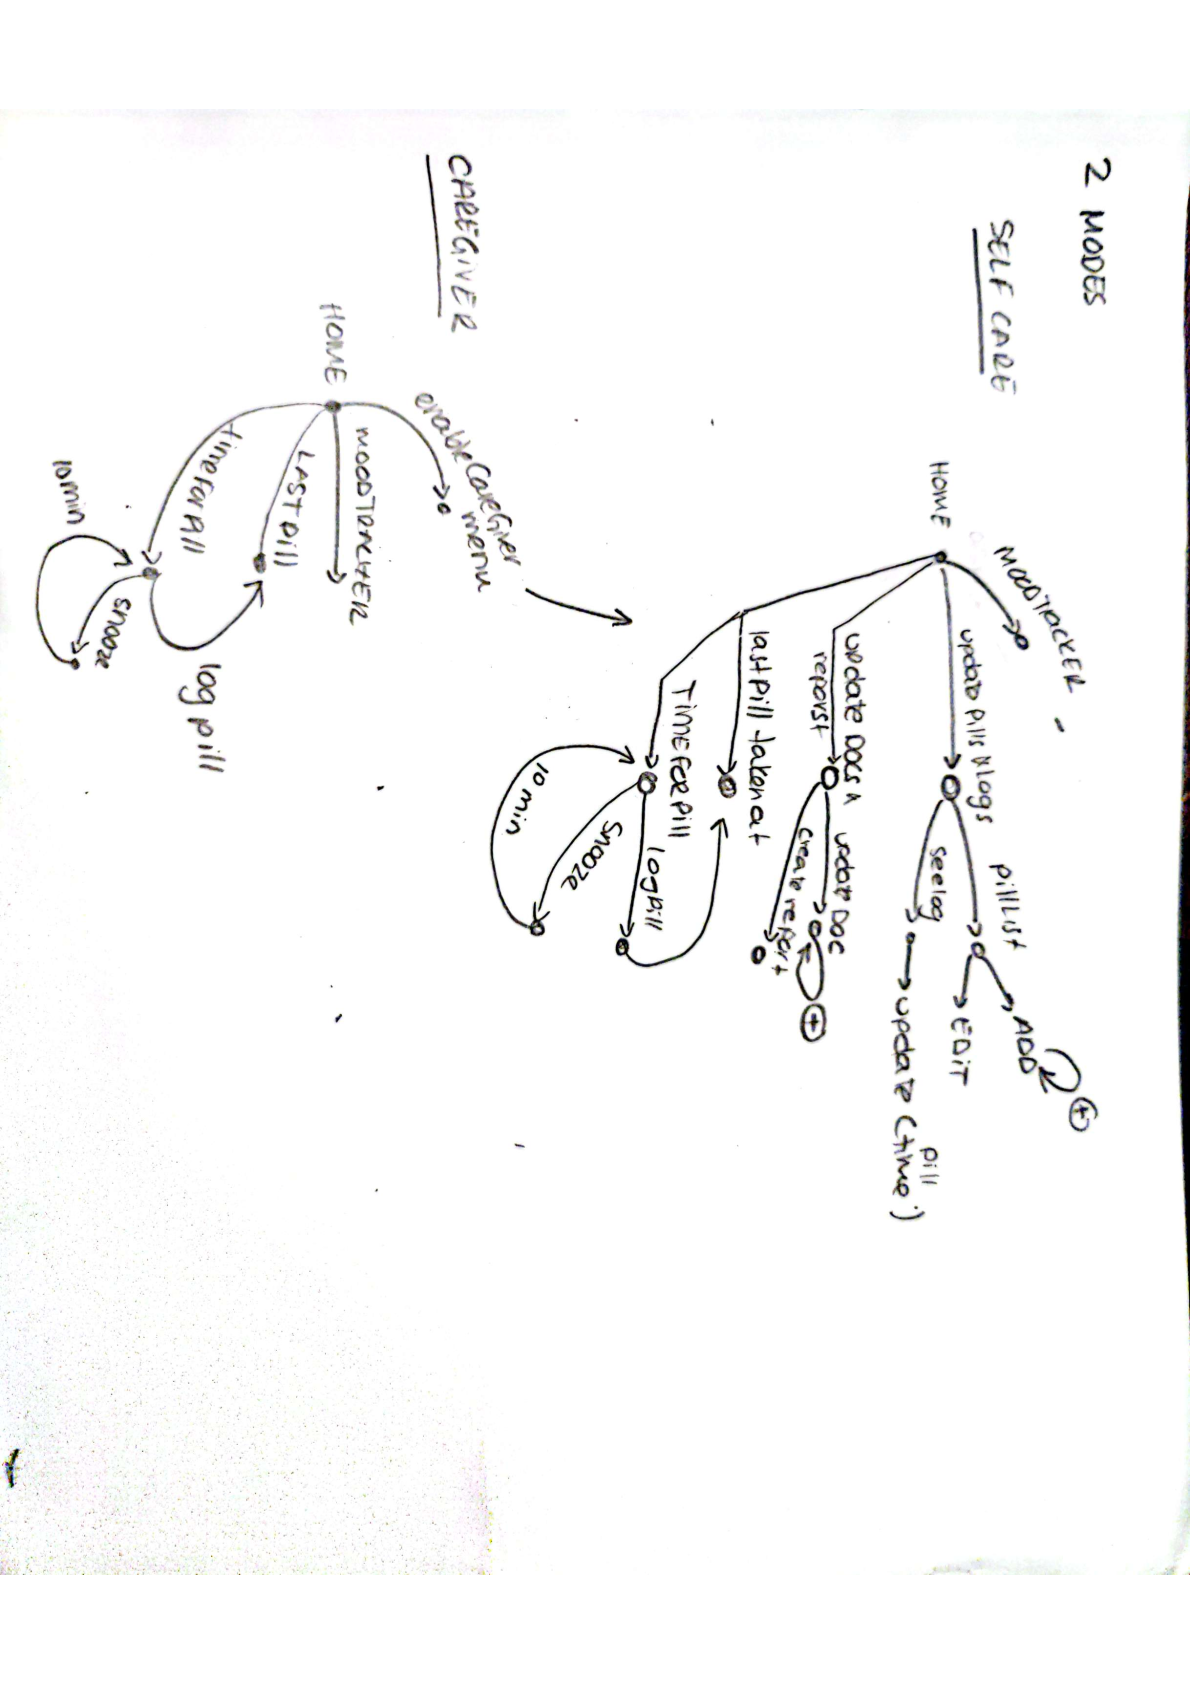 2 MODES
SELF CARE
HOME
MOODTRACKER
update pills & logs
pillList
ADD
+
EDIT
seelog
update (time)
pill
update Docs &
reporst
updat Doc
+
create report
last pill taken at
TIME FOR pill
log pill
snooze
10 min
CAREGIVER
HOME
enable CareGiver
menu
MOODTRACKER
LAST pill
time for pill
log pill
snooze
10 min